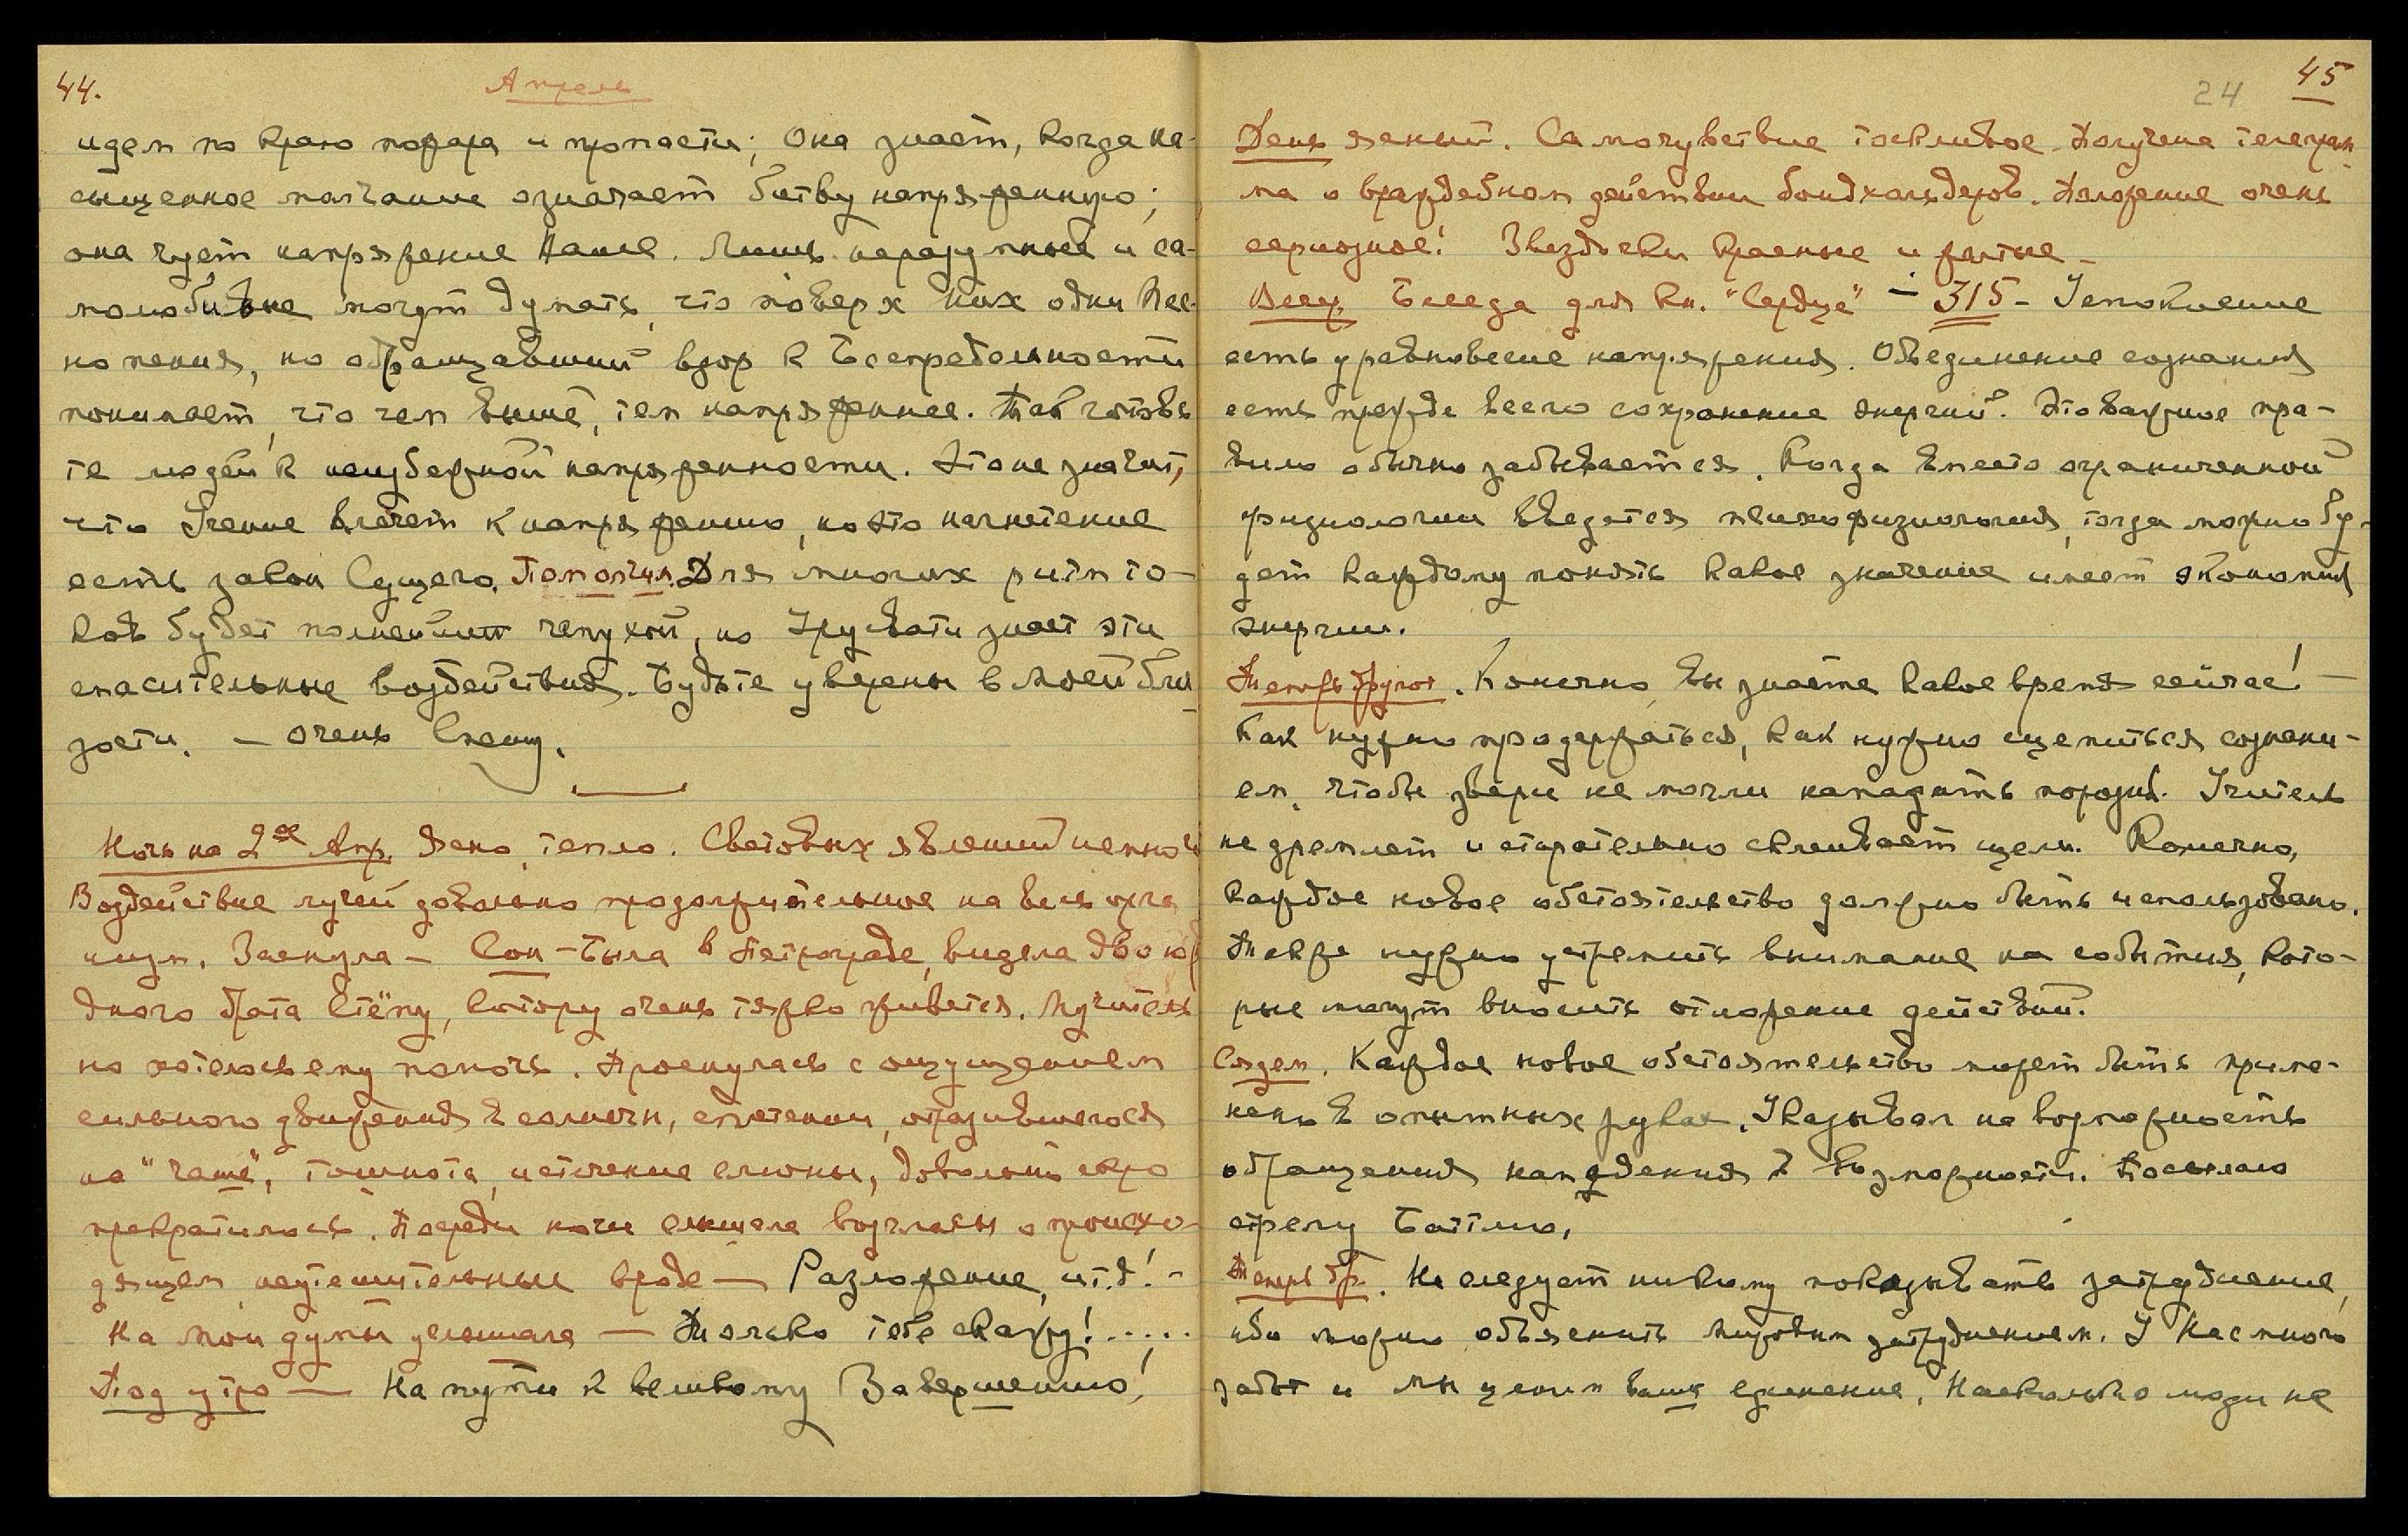 44.
Апрель
идем по краю пожара и пропасти; Она знает, когда на-
сыщенное молчание означает битву напряженную;
она чует напряжение Наше. Лишь неразумные и са-
молюбивые могут думать, что поверх них одни Пес-
нопения, но обращавший взор к Беспредельности
понимает, что чем выше, тем напряженнее. Так готовь-
те людей к неизбежной напряженности. Это не значит,
что Учение влечет к напряжению, но это нагнетение
есть закон Сущего. Помолчим. Для многих ритм то-
ков будет полнейшей чепухой, но Урусвати знает эти
спасительные воздействия. Будьте уверены в моей бли-
зости. — очень Спешу.
Ночь на 2ое Апр. Ясно, тепло. Световых явлений немного
Воздействие лучей довольно продолжительное на весь орга
низм. Заснула — Сон — Была в Петрограде, видела двою
дного брата Стёпу, котору очень тяжко живется. Мучитель
но хотелось ему помочь. Проснулась с ощущением
сильного движения в солнечн, сплетении, отразившегося
на "чаше", тошнота, истечение слюны, довольно скоро
прекратилось. Посреди ночи слышала возгласы о происхо-
дящем, неутешительные вроде — Разложение, и т.д.! —
На мои думы услышала — Только тебе скажу!.....
Под утро — На пути к великому Завершению!
24
45
День ясный. Самочувствие тоскливое. Получена телеграм-
ма о враждебном действии бондхольдеров. Положение очень
серьозное! Звездочки красные и желтые —
Веч. Беседа для кн. "Сердце" — 315 — Успокоение
есть уравновесие напряжения. Объединение сознания
есть прежде всего сохранение энергий. Это важное пра-
вило обычно забывается. Когда вместо ограниченной
физиологии введется психофизиология, тогда можно бу-
дет каждому понять какое значение имеет экономия
энергии.
Теперь другое. Конечно, вы знаете какое время сейчас! —
Как нужно продержаться, как нужно сцепиться сознани-
ем, чтобы звери не могли нападать порознь. Учитель
не дремлет и старательно склеивает щели. Конечно,
каждое новое обстоятельство должно быть использовано.
Также нужно устремить внимание на события, кото-
рые могут вносить отложение действий.
Создем. Каждое новое обстоятельство может быть приме-
нено в опытных руках. Указывал на возможность
обращения нападения в возможности. Посылаю
стрелу Баттлю.
Теперь др. Не следует никому показывать затруднение,
ибо можно объяснить мировым затруднением. У Нас много
забот и Мы ценим ваше единение. Насколько люди не